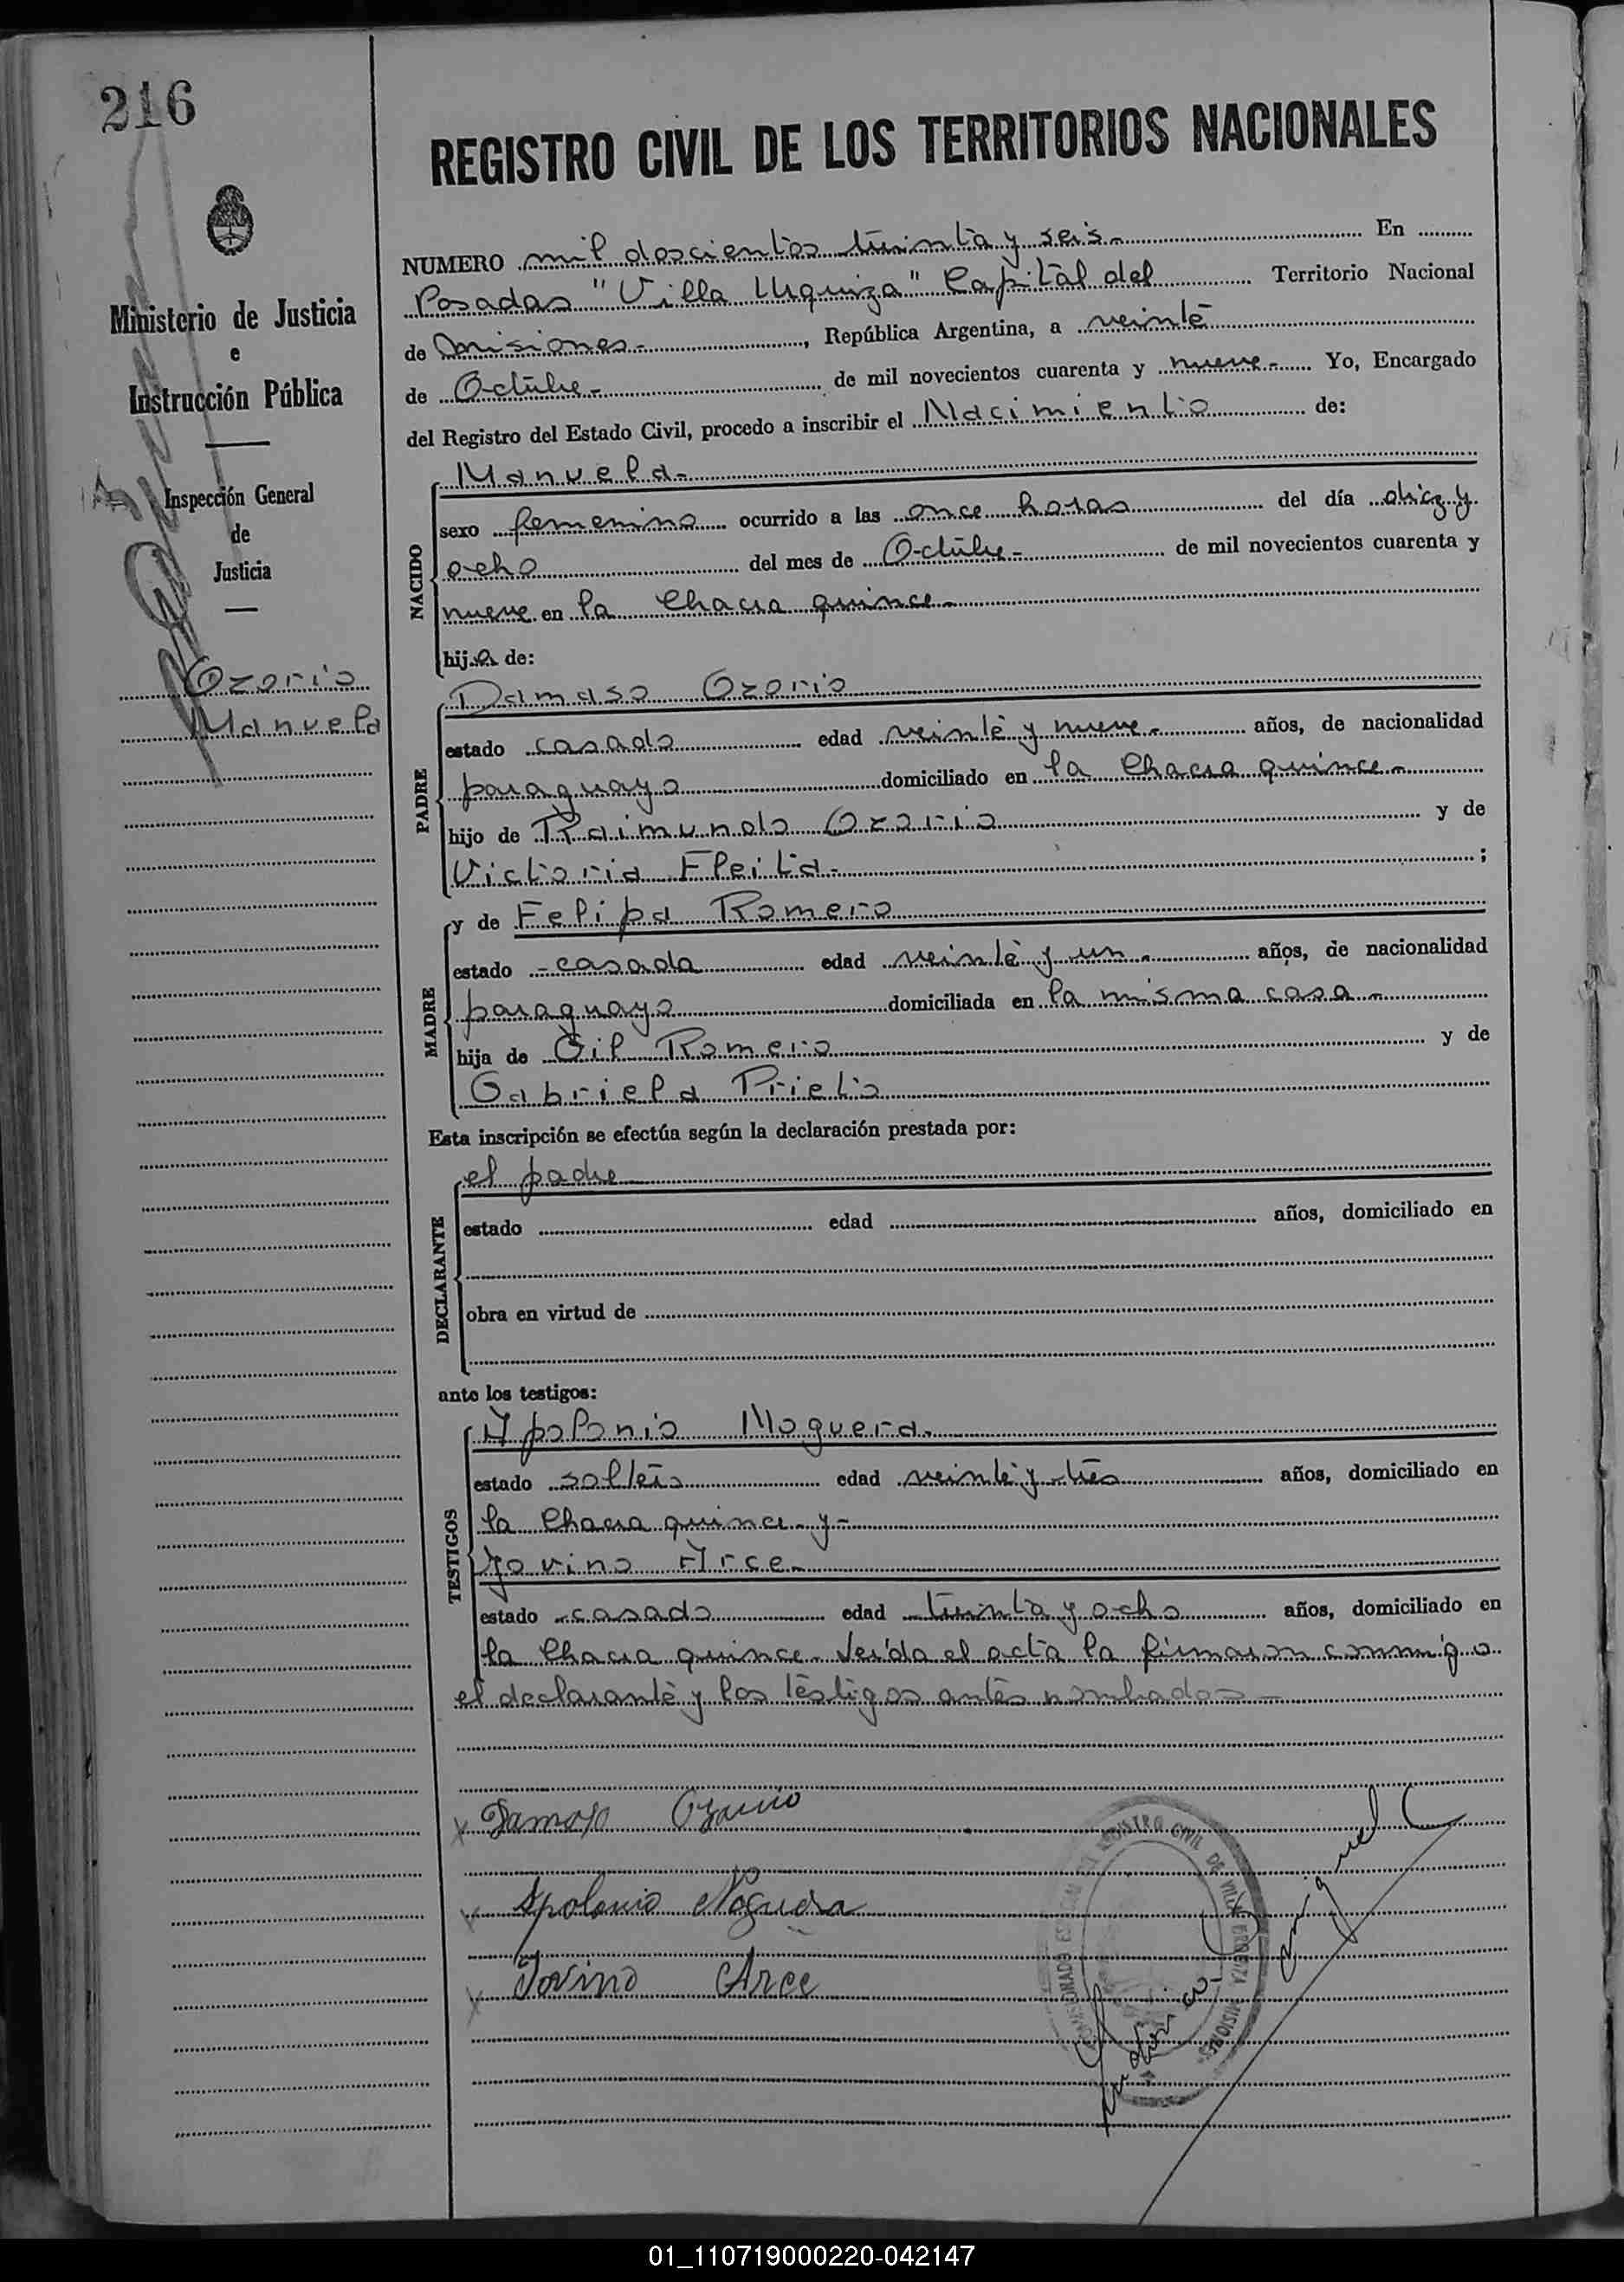 216
REGISTRO CIVIL DE LOS TERRITORIOS NACIONALES
Ministerio de Justicia
e
Instrucción Pública
Inspección General
de
Justicia
Ozorio
Manuela
NUMERO mil doscientos treinta y seis. En
Posadas "Villa Urquiza" Capital del Territorio Nacional
de Misiones.-, República Argentina, a veinte
de Octubre.- de mil novecientos cuarenta y nueve.- Yo, Encargado
del Registro del Estado Civil, procedo a inscribir el Nacimiento de:
NACIDO
Manuela.-
sexo femenino ocurrido a las once horas del día diez y
ocho del mes de Octubre.- de mil novecientos cuarenta y
nueve en la Chacra quince.-
hija de:
PADRE
Damaso Ozorio
estado casado edad veinte y nueve.- años, de nacionalidad
paraguayo domiciliado en la Chacra quince.-
hijo de Raimundo Ozorio y de
Victoria Fleita.- ;
MADRE
y de Felipa Romero
estado -casada edad veinte y un.- años, de nacionalidad
paraguayo domiciliada en la misma casa.-
hija de Gil Romero y de
Gabriela Prieto
Esta inscripción se efectúa según la declaración prestada por:
DECLARANTE
el padre
estado edad años, domiciliado en
obra en virtud de
ante los testigos:
TESTIGOS
Apolonio Noguera.
estado soltero edad veinte y tres años, domiciliado en
la Chacra quince.- y-
Jovino Arce.-
estado -casado edad treinta y ocho años, domiciliado en
la Chacra quince. Leída el acta la firmaron conmigo
el declarante y los testigos antes nombrados-
x Damaso Ozorio
x Apolonio Noguera
x Jovino Arce
REGISTRO CIVIL DE VILLA URQUIZA MISIONES
01_110719000220-042147